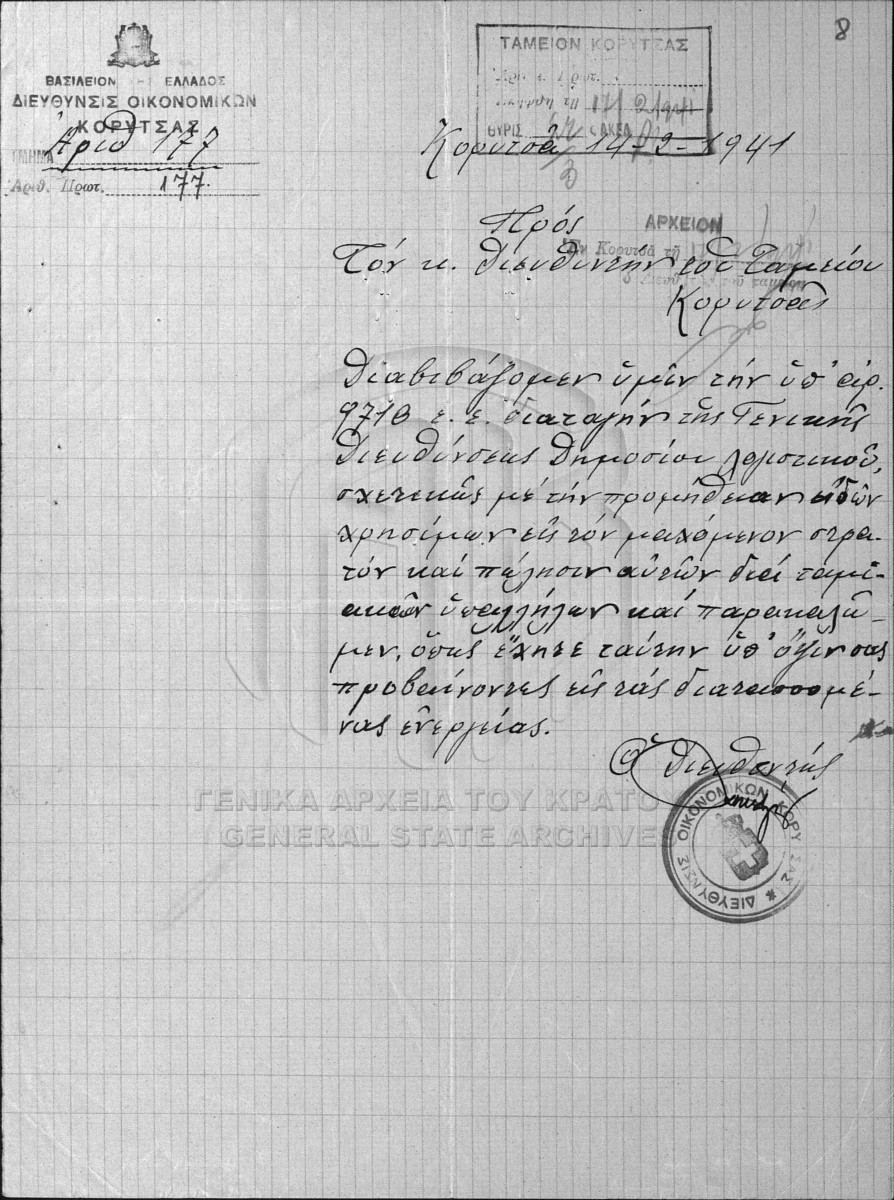 8
ΒΑΣΙΛΕΙΟΝ ΤΗΣ ΕΛΛΑΔΟΣ
ΔΙΕΥΘΥΝΣΙΣ ΟΙΚΟΝΟΜΙΚΩΝ
ΚΟΡΥΤΣΑΣ
ΤΜΗΜΑ Ἀριθ 177
Ἀριθ. Πρωτ. 177.
ΤΑΜΕΙΟΝ ΚΟΡΥΤΣΑΣ
17/2/941
ΘΥΡΙΣ ΦΑΚΕΛ
Κορυτσᾶ 14-2-1941
Πρός
ΑΡΧΕΙΟΝ
Ἐν Κορυτσᾶ τῇ
Τόν κ. Διευθυντήν τοῦ Ταμείου
Κορυτσᾶς
Διαβιβάζομεν ὑμῖν τήν ὑπ' ἀρ.
9718 ἐ. ἔ. διαταγήν τῆς Γενικῆς
Διευθύνσεως Δημοσίου Λογιστικοῦ,
σχετικῶς μέ τήν προμήθειαν εἰδῶν
χρησίμων εἰς τόν μαχόμενον στρα-
τόν καί πώλησιν αὐτῶν διά ταμι-
ακῶν ὑπαλλήλων καί παρακαλοῦ-
μεν, ὅπως ἔχητε ταύτην ὑπ' ὄψιν σας
προβαίνοντες εἰς τάς διατασσομέ-
νας ἐνεργείας.
Ὁ Διευθυντής
ΔΙΕΥΘΥΝΣΙΣ ΟΙΚΟΝΟΜΙΚΩΝ ΚΟΡΥΤΣΑΣ
ΓΕΝΙΚΑ ΑΡΧΕΙΑ ΤΟΥ ΚΡΑΤΟΥΣ
GENERAL STATE ARCHIVES